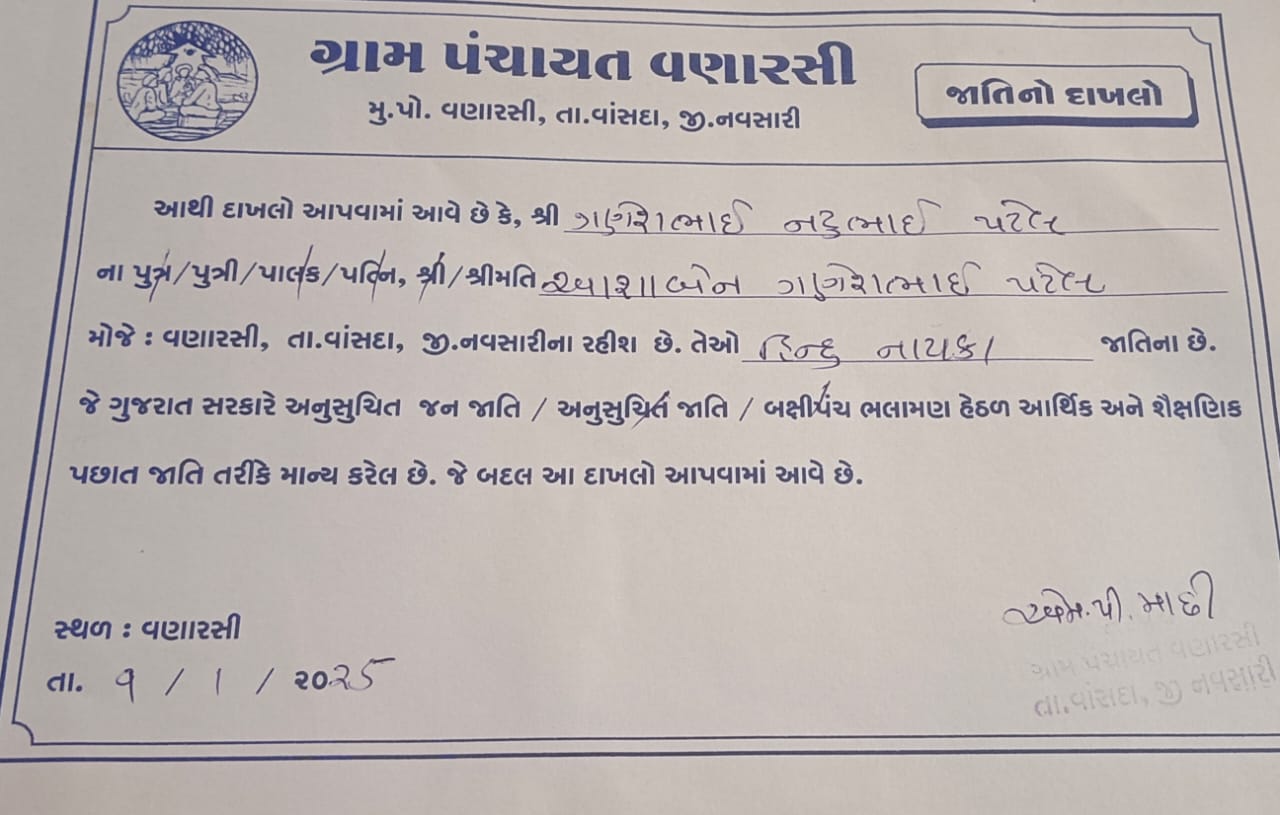 ગ્રામ પંચાયત વણારસી
મુ.પો. વણારસી, તા.વાંસદા, જી.નવસારી
જાતિનો દાખલો
આથી દાખલો આપવામાં આવે છે કે, શ્રી ગણેશભાઈ નટુભાઈ પટેલ
ના પુત્ર/પુત્રી/પાલક/પત્નિ, શ્રી/શ્રીમતિ આશાબેન ગણેશભાઈ પટેલ
મોજે : વણારસી, તા.વાંસદા, જી.નવસારીના રહીશ છે. તેઓ હિન્દુ નાયકા જાતિના છે.
જે ગુજરાત સરકારે અનુસુચિત જન જાતિ / અનુસુચિત જાતિ / બક્ષીપંચ ભલામણ હેઠળ આર્થિક અને શૈક્ષણિક
પછાત જાતિ તરીકે માન્ય કરેલ છે. જે બદલ આ દાખલો આપવામાં આવે છે.
એમ.પી. માછી
સ્થળ : વણારસી
ગ્રામ પંચાયત વણારસી
તા. ૧ / ૧ / ૨૦25
તા.વાંસદા, જી નવસારી